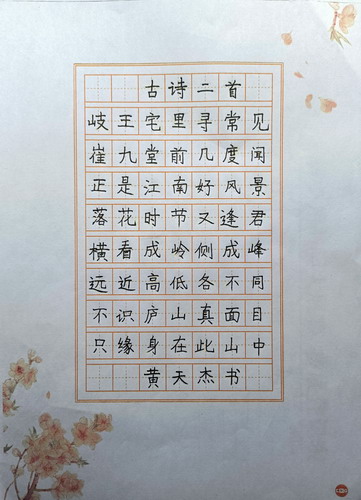 古诗二首
岐王宅里寻常见
崔九堂前几度闻
正是江南好风景
落花时节又逢君
横看成岭侧成峰
远近高低各不同
不识庐山真面目
只缘身在此山中
黄天杰书